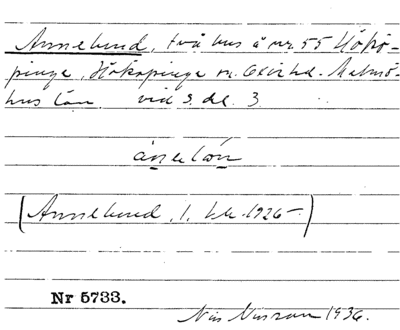 Annelund, två hus å nr 55 Hökö-
pinge, Hököpinge sn. Oxie hd. Malmö-
hus län. vid S. dl. 3
ànelón
(Annelund, 1. bl. 1926)
Nr 5733.
Nils Nilsson 1936.